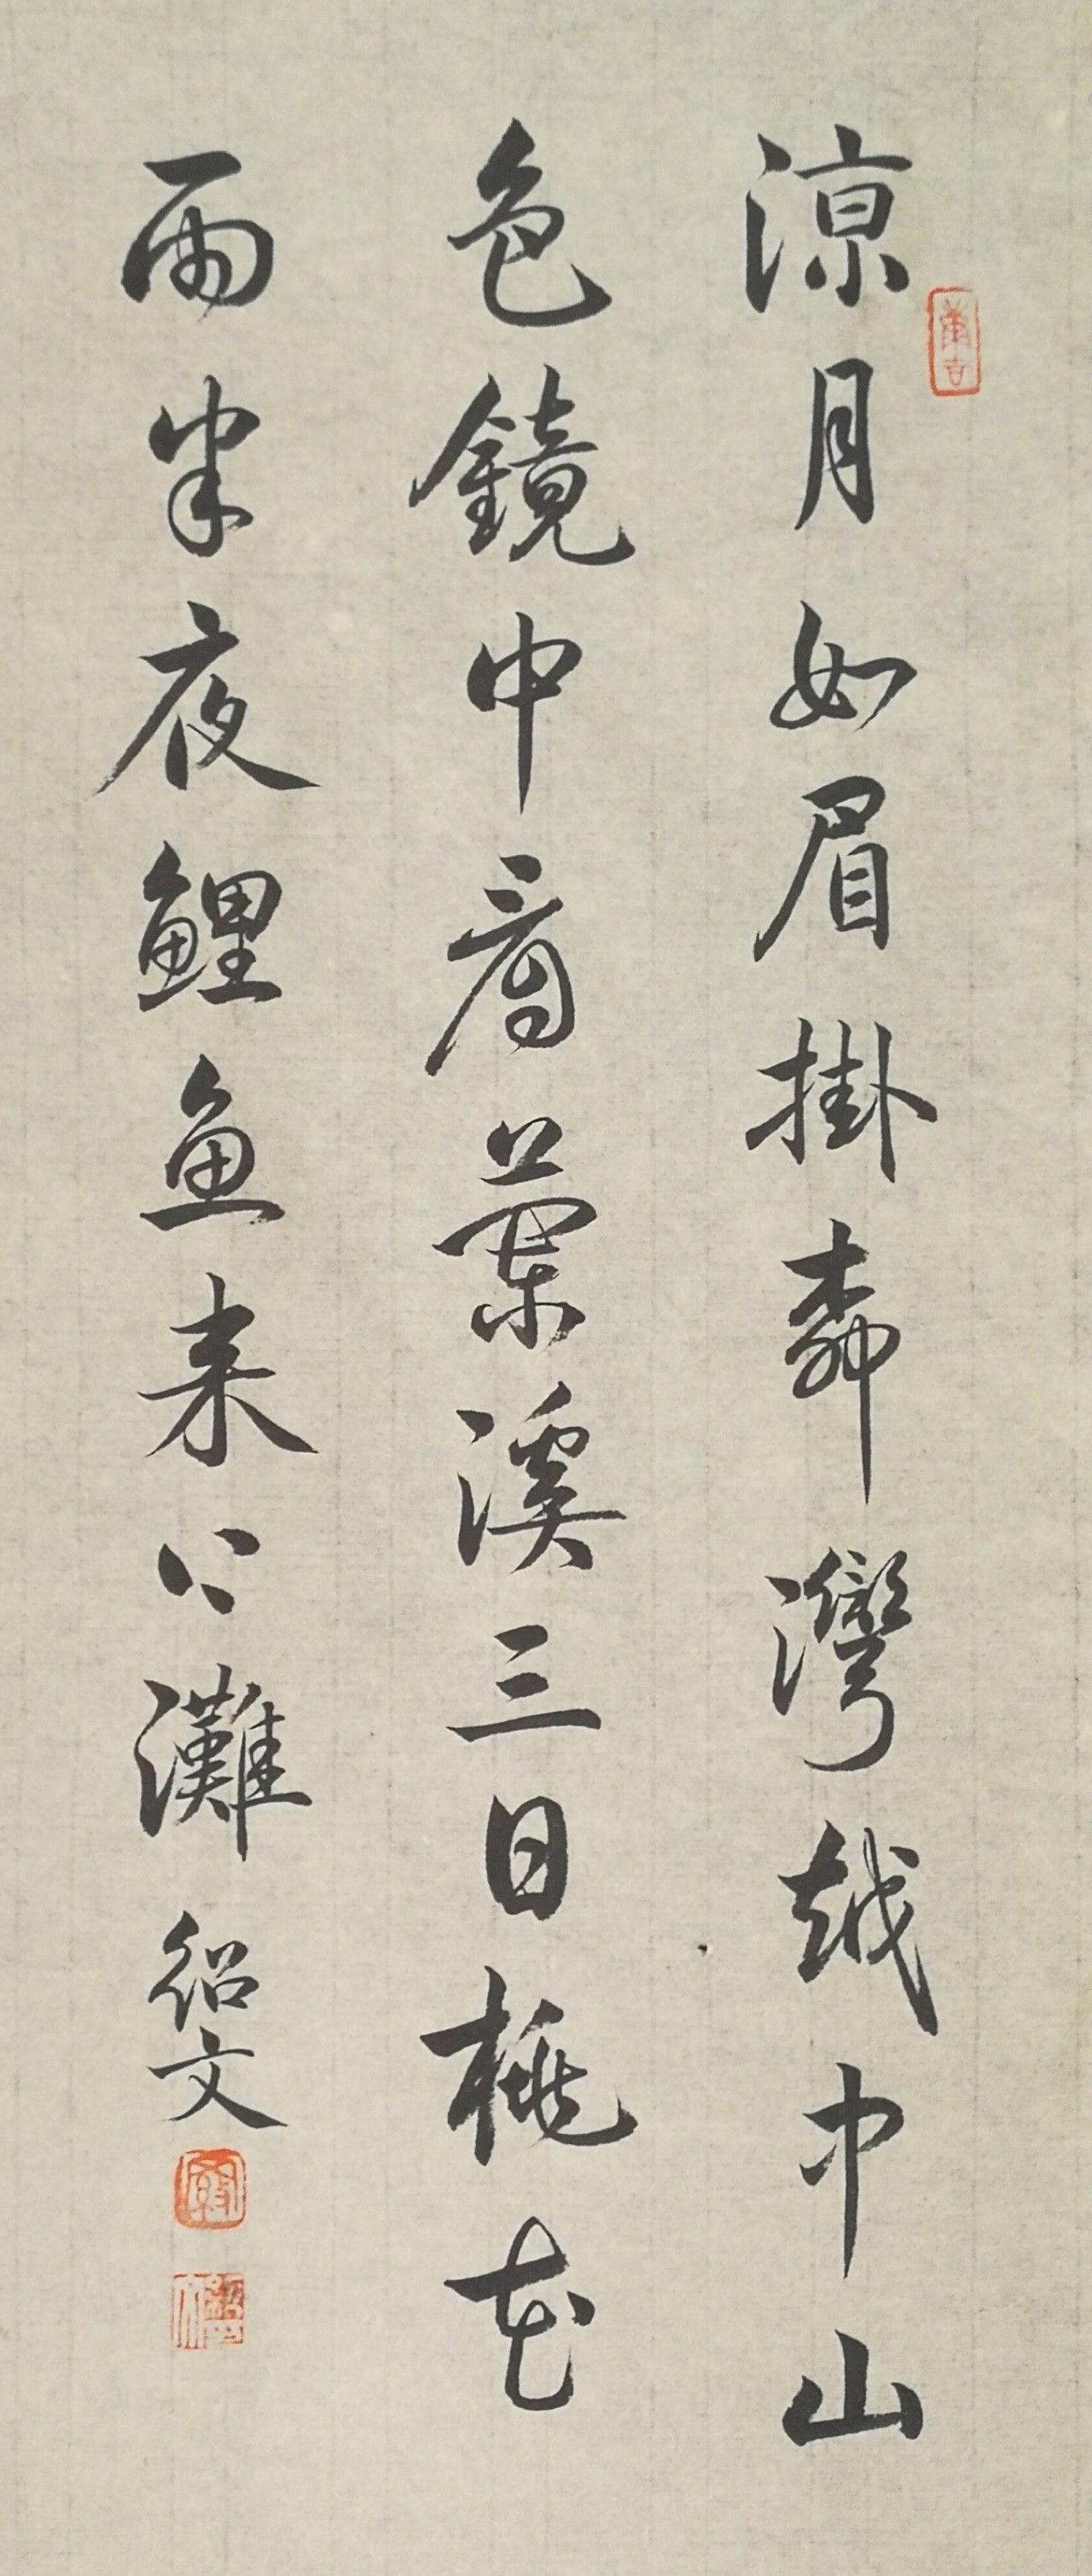 涼月如眉掛柳灣越中山
色鏡中看蘭溪三日桃花
雨半夜鯉魚来上灘
紹文